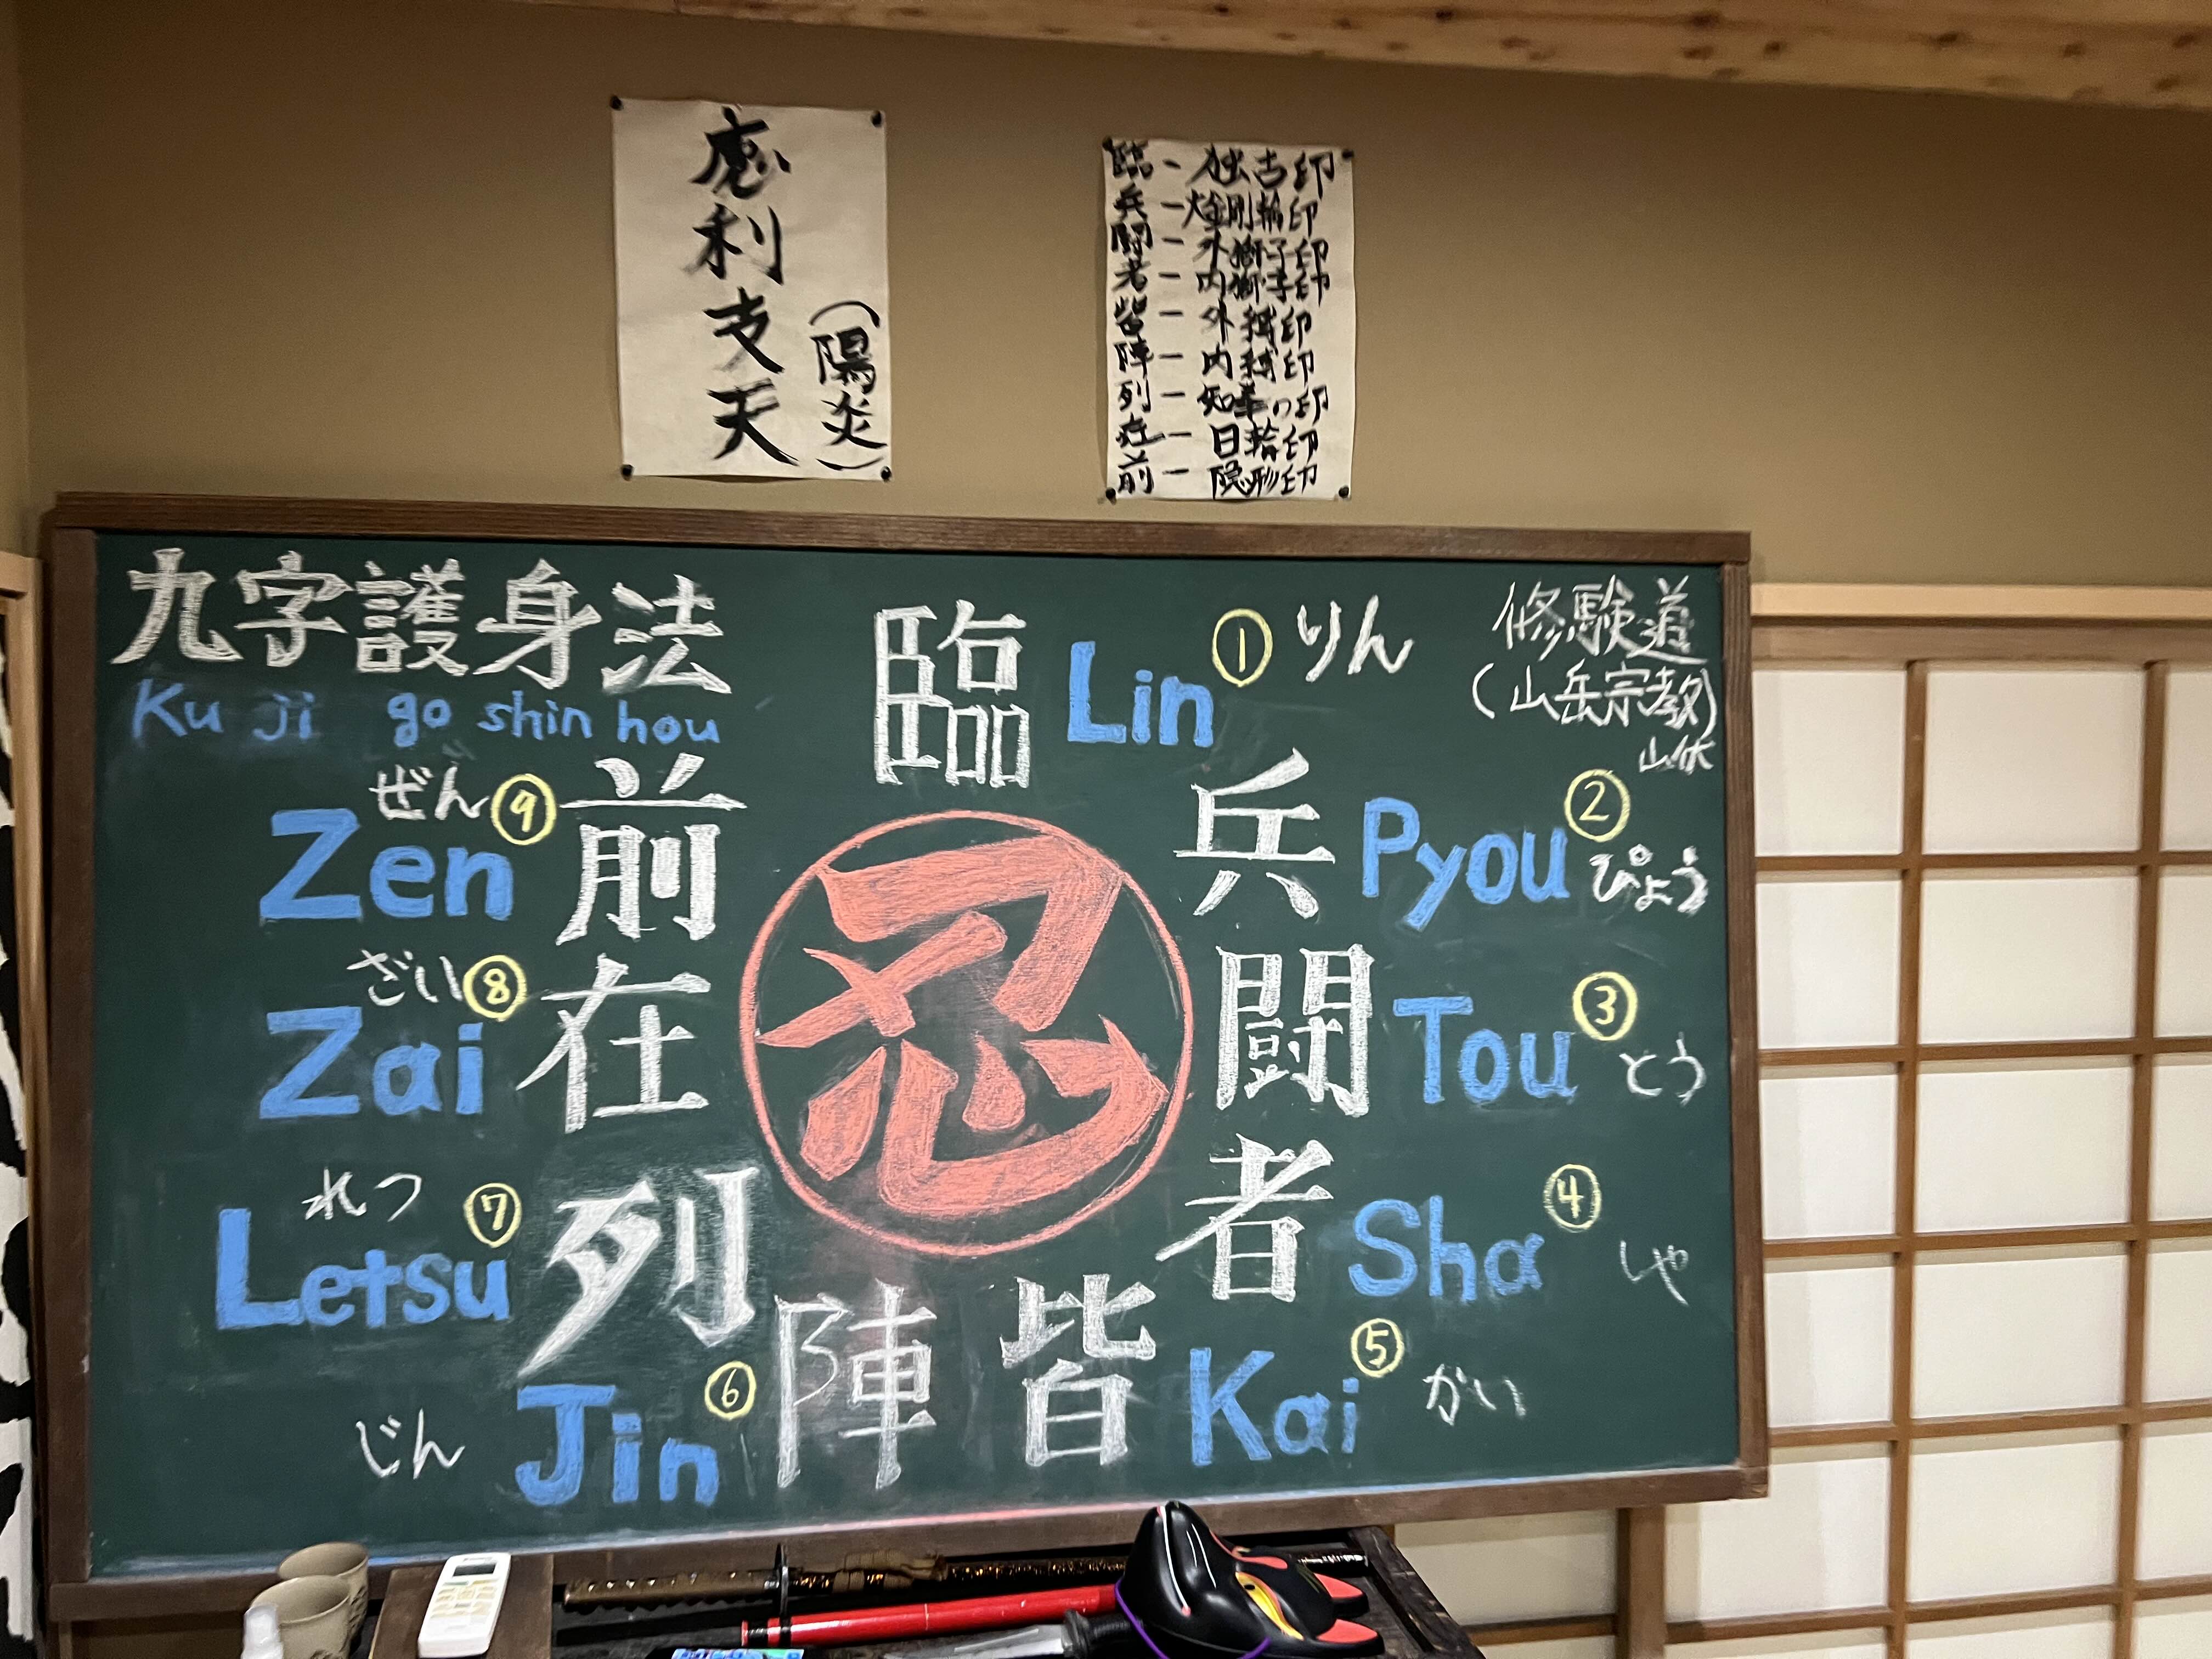 摩利支天
(陽炎)
臨 - 独古印
兵 - 大金剛輪印
闘 - 外獅子印
者 - 内獅子印
皆 - 外縛印
陣 - 内縛印
列 - 知拳印
在 - 日輪印
前 - 隠形印
九字護身法
Ku ji go shin hou
修験道
(山岳宗教)
山伏
臨 Lin ① りん
兵 Pyou ② ぴょう
闘 Tou ③ とう
者 Sha ④ しゃ
皆 Kai ⑤ かい
陣 Jin ⑥ じん
列 Letsu ⑦ れつ
在 Zai ⑧ ざい
前 Zen ⑨ ぜん
忍